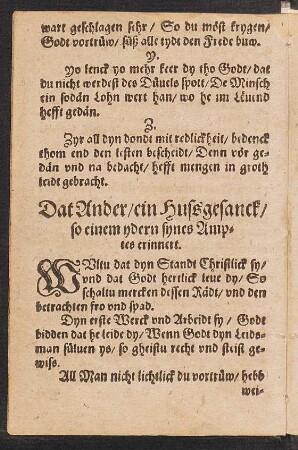 wart geschlagen sehr / So du möst krygen /
Godt vortrüw / süß alle tydt den Frede buw.
Y.
Yo lenck yo mehr keer dy tho Godt / dat
du nicht werdest des Düuels spott / De Minsch
ein sodän Lohn wert han / wo he im Leuend
hefft gedän.
Z.
Zyr all dyn dondt mit redlickheit / bedenck
thom end den lesten bescheidt / Denn vör ge-
dän vnd na bedacht / hefft mengen in groth
leidt gebracht.
Dat Ander / ein Hußgesanck /
so einem ydern synes Amp-
tes erinnert.
WUltu dat dyn Standt Christlick sy /
vnd dat Godt hertlick leue dy / So
schaltu mercken dessen Rädt / vnd den
betrachten fro vnd spad.
Dyn erste Werck vnd Arbeidt sy / Godt
bidden dat he leide dy / Wenn Godt dyn Leids-
man süluen ys / so gheistu recht vnd steist ge-
wiss.
All Man nicht lichtlick du vortrüw / hebb
wei-